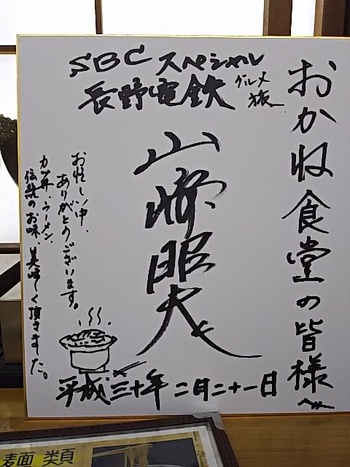 おかね食堂の皆様へ
SBCスペシャル
長野電鉄グルメ旅
山﨑昭夫
お忙しい中、
ありがとうございます。
カツ丼・ラーメン
伝統のお味、美味しく頂きました。
平成三十年二月二十一日
麺類